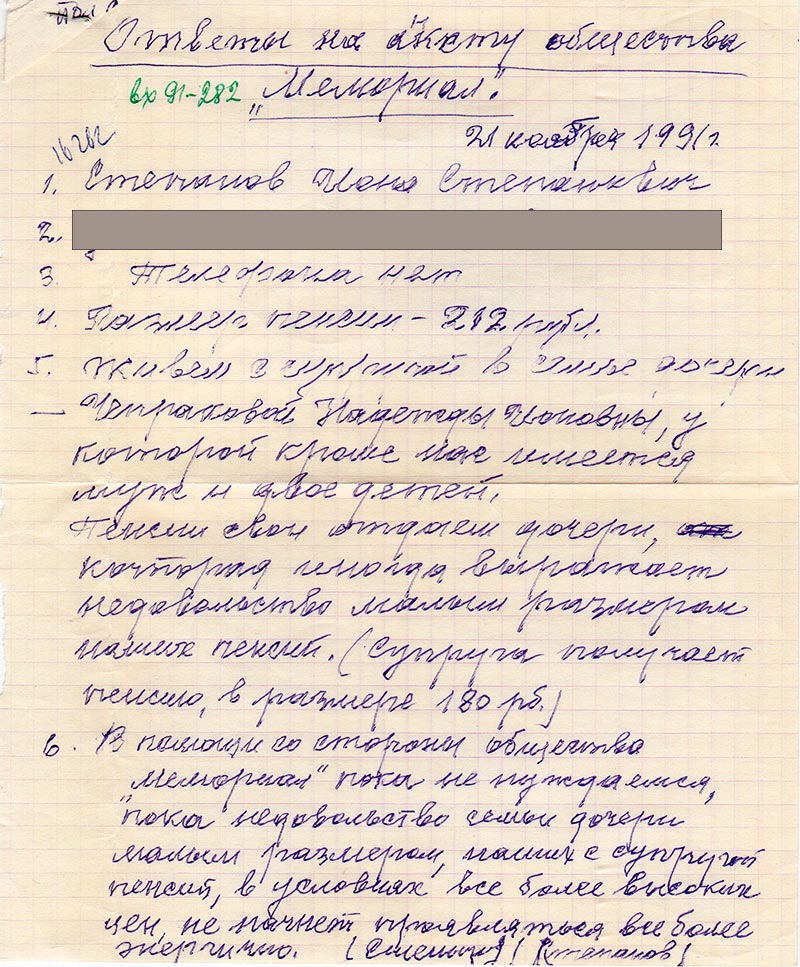 Ответы на анкету общества
вх 91-282 „Мемориал".
16282
21 ноября 1991 г.
1. Степанов Иона Степанович
2.
3. Телефона нет
4. Размер пенсии – 212 рубл.
5. Живём с супругой в семье дочери
– Чепраковой Надежды Ионовны, у
которой кроме нас имеется
муж и двое детей.
Пенсии свои отдаем дочери,
которая иногда выражает
недовольство малым размером
наших пенсий. (Супруга получает
пенсию, в размере 180 рб.)
6. В помощи со стороны общества
„Мемориал" пока не нуждаемся,
пока недовольство семьи дочери
малым размером, наших с супругой
пенсий, в условиях все более высоких
цен, не начнет проявляться все более
энергично. (Степанов)